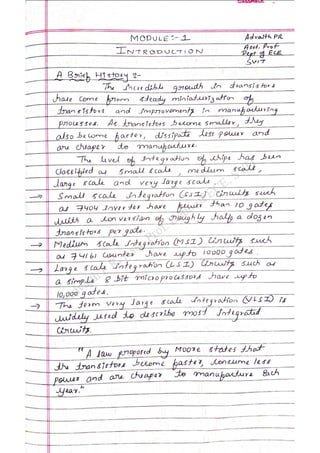 MODULE:-1
Advaith PR
Asst. Prof
Dept of ECE
SVIT
INTRODUCTION
A Brief History :-
The incredible growth in transistors
have come from steady miniaturization of
transistors and improvements in manufacturing
processes. As transistors become smaller, they
also become faster, dissipate less power and
are cheaper to manufacture.
The level of integration of chips has been
classified as small scale, medium scale,
large scale and very large scale.
→ Small scale integration (SSI): Circuits such
as 7404 inverter have fewer than 10 gates
with a conversion of roughly half a dozen
transistors per gate.
→ Medium scale integration (MSI) Circuits such
as 74161 counter have upto 10000 gates
→ Large scale integration (LSI) Circuits such as
a simple 8 bit microprocessors have upto
10,000 gates.
→ The term very large scale integration (VLSI) is
widely used to describe most integrated
circuits.
"A law proposed by Moore states that
the transistors become faster, consume less
power and are cheaper to manufacture each
year."